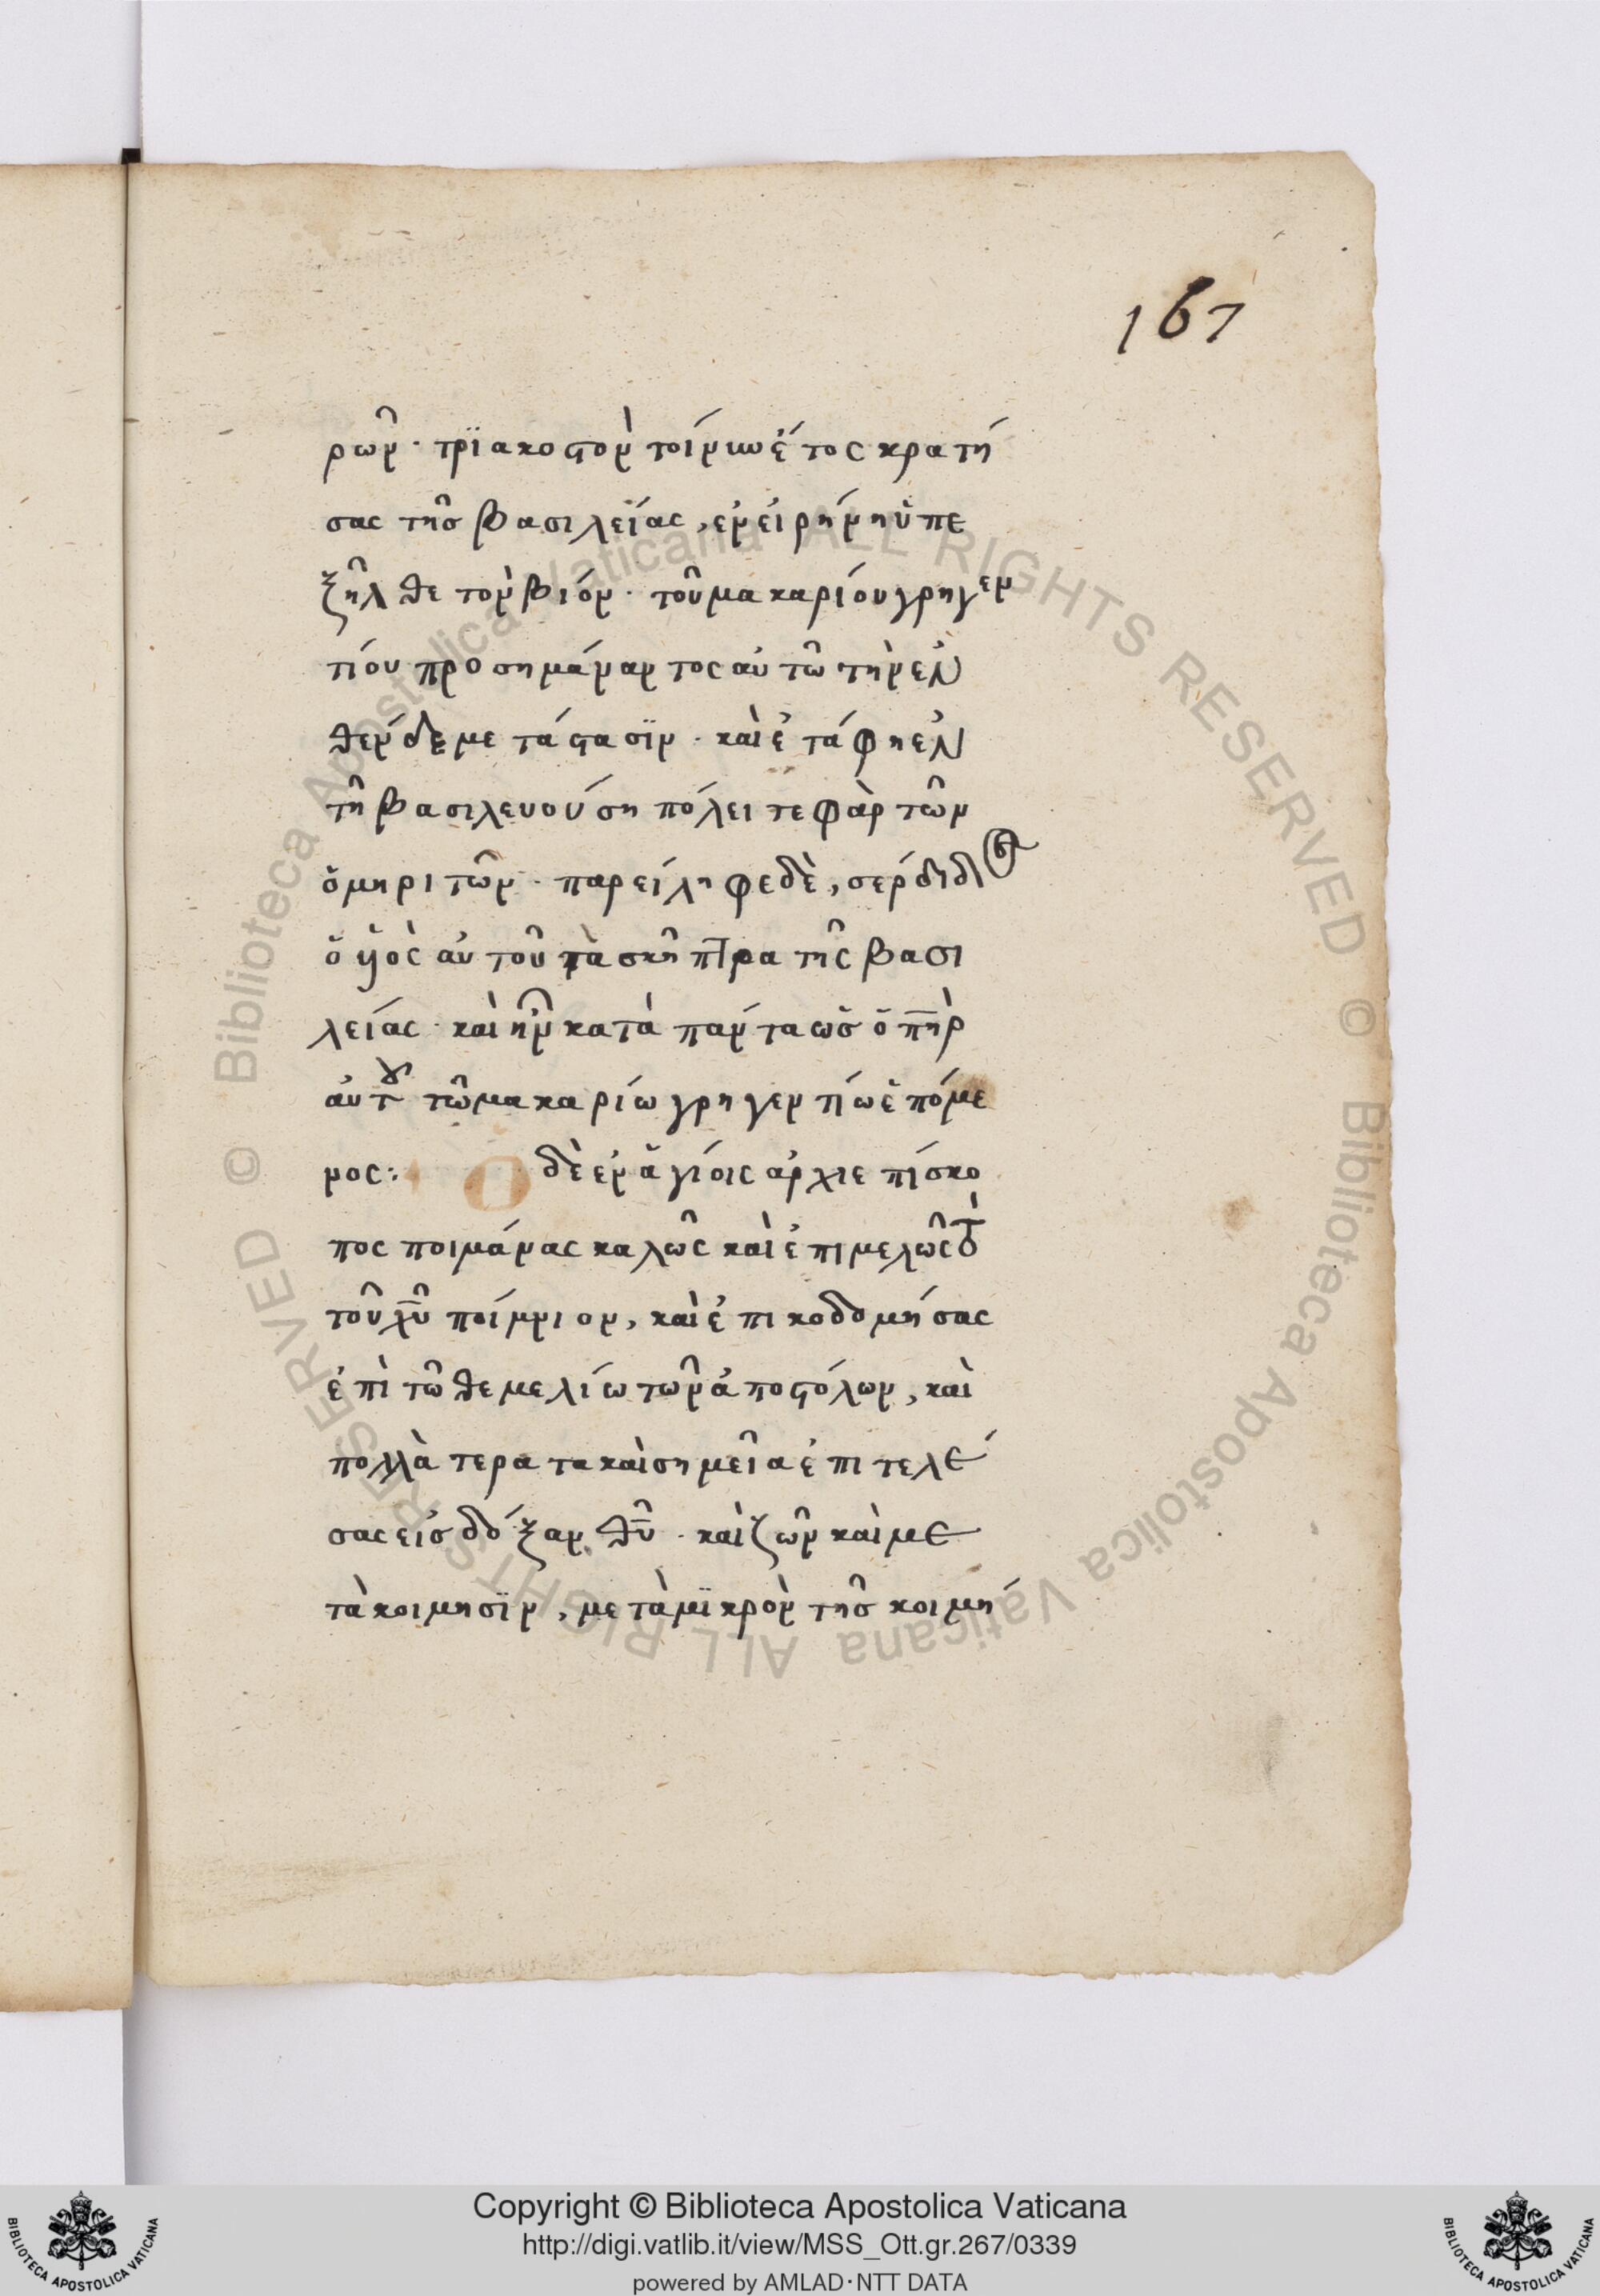 167
ρων̑· τρϊακοστὸν τοίνυν ἔτος κρατή
σας τῆς βασιλείας, ἐν εἰρήνη ὑπε
ξῆλθε τὸν βίον· τοῦ μακαρίου γρηγεν
τίου προσημάναντος αὐτῶ τὴν ἐν
θένδε μετάστασϊν· καὶ ἐτάφη ἐν
τῆ βασιλευούση πόλει τεφὰρ τῶν
ὁμηριτῶν· παρείληφε δὲ, σέρδιδος
ὁ ὑιὸς αὐτοῦ τὰ σκῆπτρα τῆς βασι
λείας· καὶ ἦν κατὰ πάντα ὡς ὁ πηρ
αὐτοῦ τῶ μακαρίω γρηγεντίω ἑπόμε
νος: Ο δὲ ἐν ἁγίοις ἀρχιεπίσκο
πος ποιμάνας καλῶς καὶ ἐπιμελῶς τὸ
τοῦ χυ ποίμνιον, καὶ ἐπικοδομήσας
ἐπὶ τῶ θεμελίω τῶν ἀποστόλων, καὶ
πολλὰ τερατα καὶ σημεῖα ἐπιτελέ
σας εἰς δόξαν θυ· καὶ ζῶν καὶ με
τὰ κοιμησϊν, μετὰ μϊκρὸν τῆς κοιμή
Copyright © Biblioteca Apostolica Vaticana
http://digi.vatlib.it/view/MSS_Ott.gr.267/0339
powered by AMLAD·NTT DATA
BIBLIOTECA APOSTOLICA VATICANA
BIBLIOTECA APOSTOLICA VATICANA
© Biblioteca Apostolica Vaticana ALL RIGHTS RESERVED
© Biblioteca Apostolica Vaticana ALL RIGHTS RESERVED